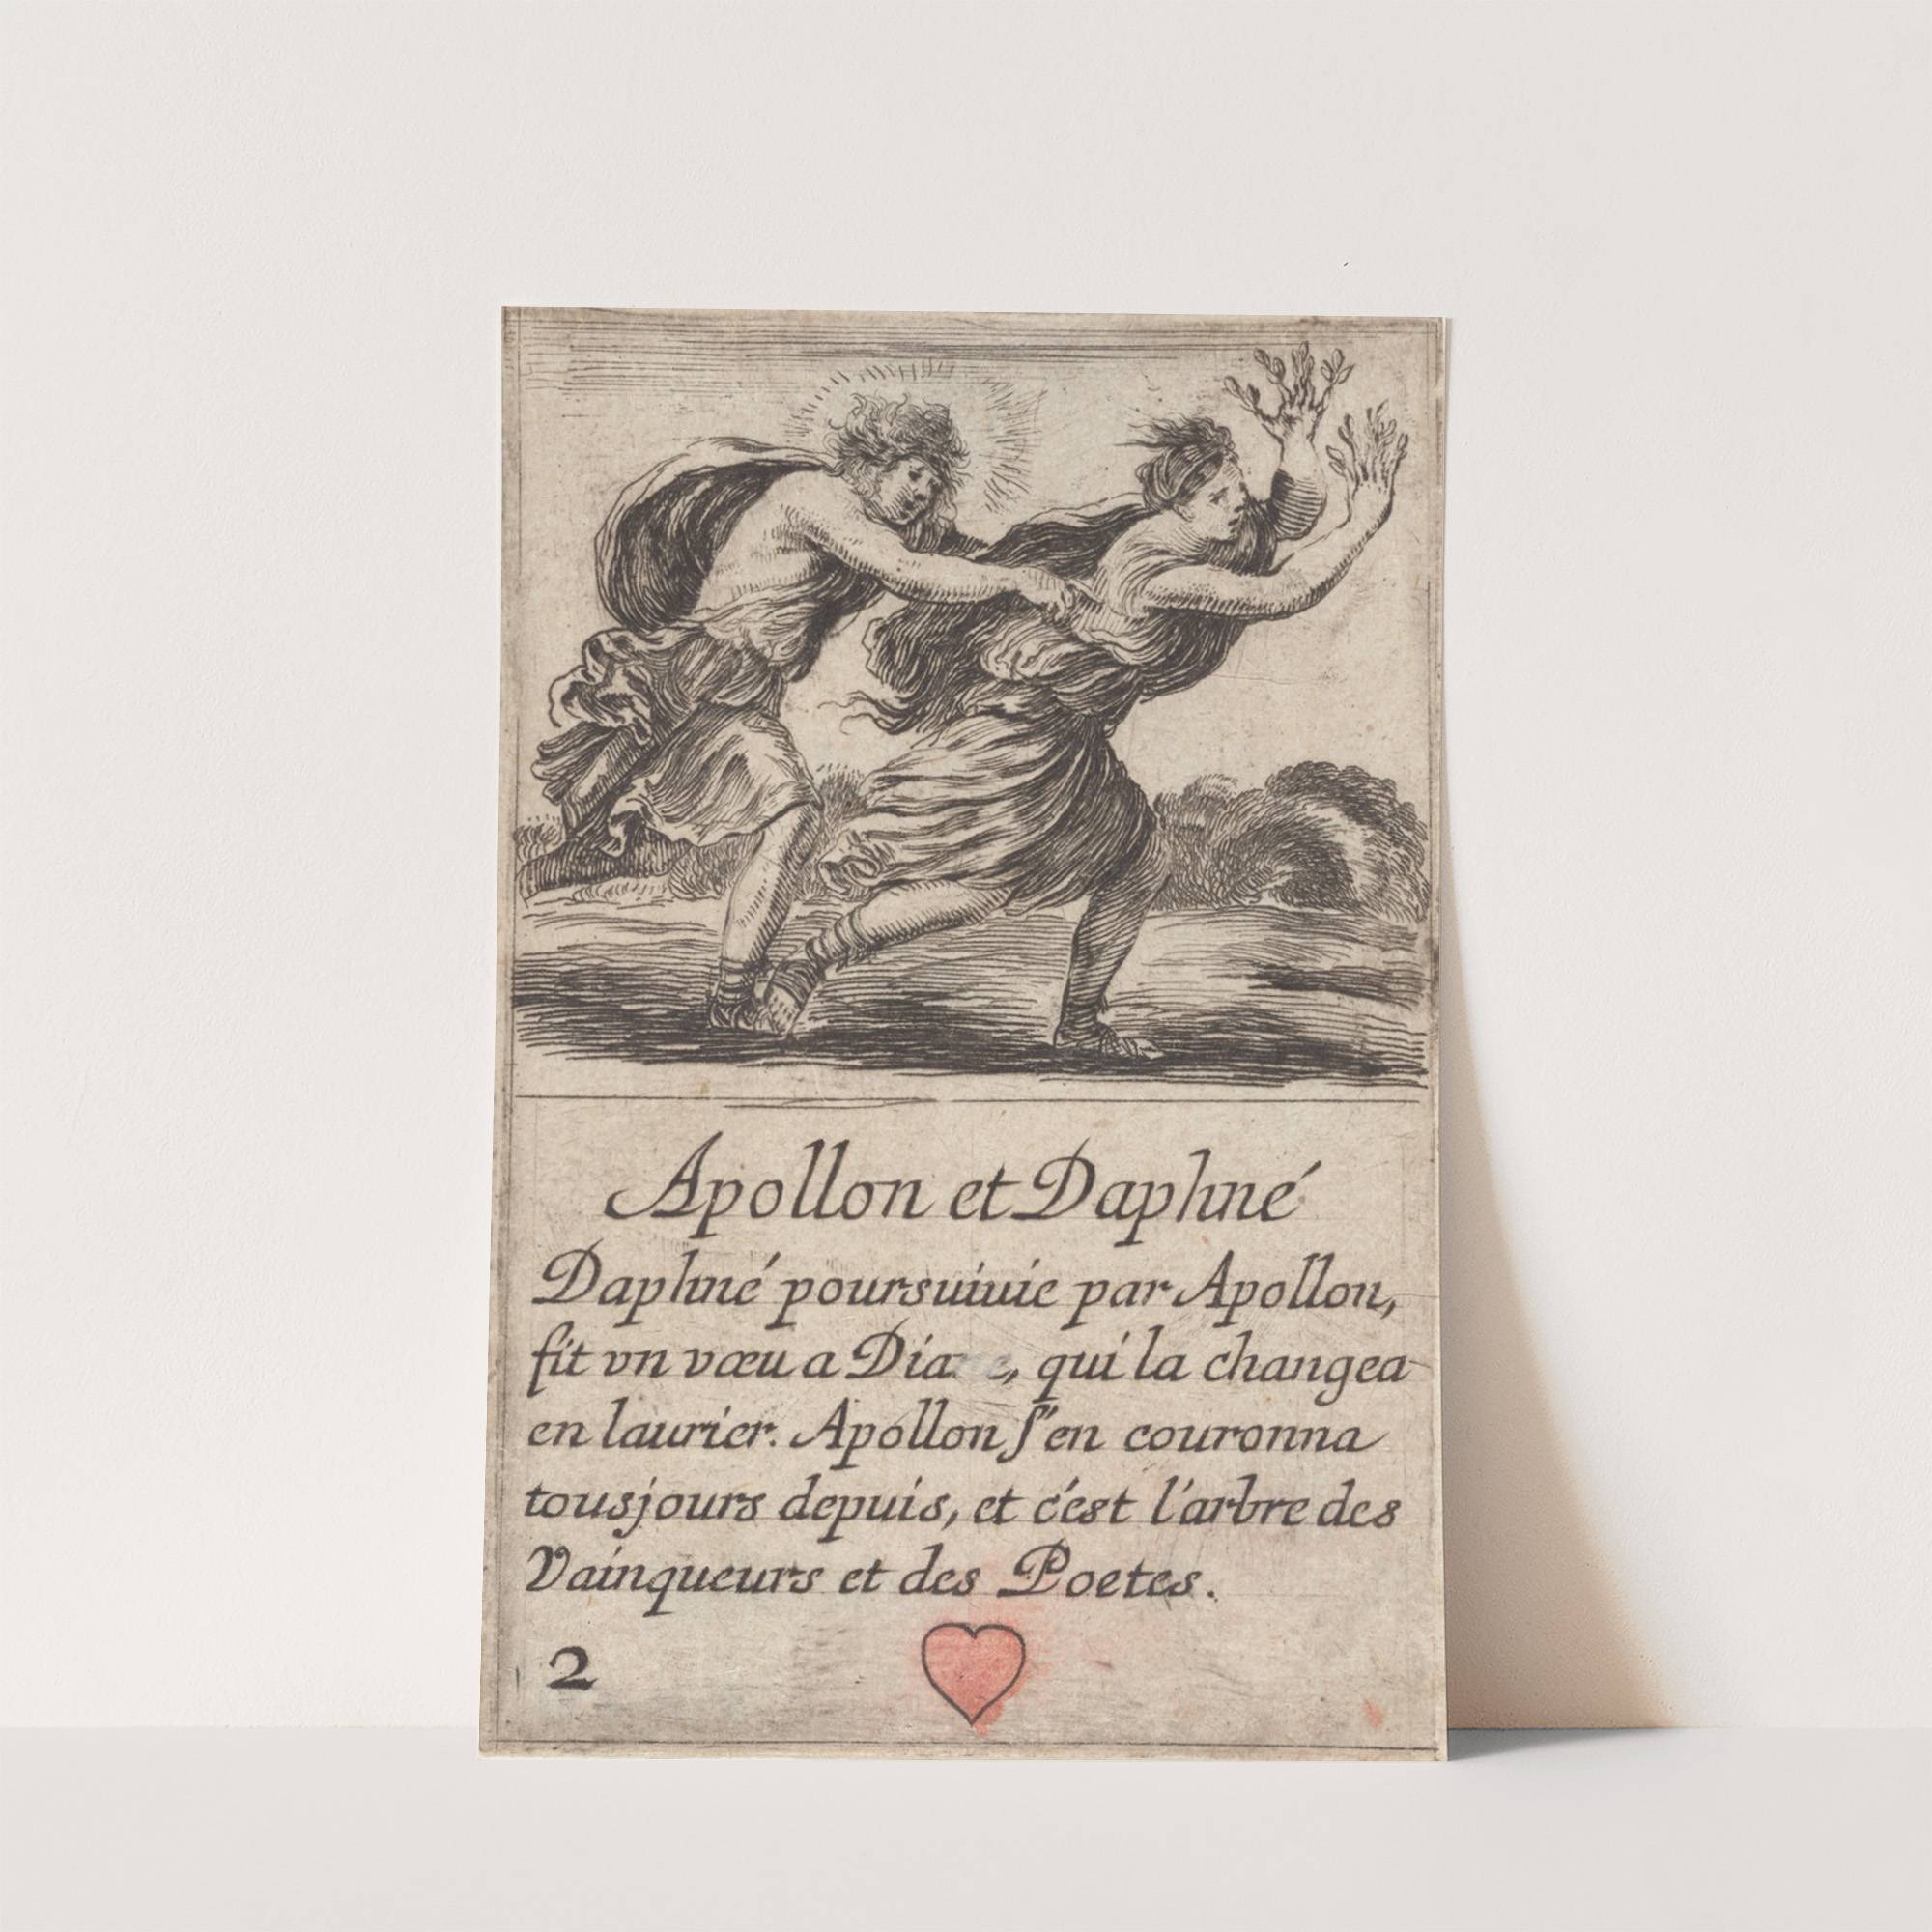 Apollon et Daphné
Daphné poursuiuie par Apollon,
fit vn vœu a Diane, qui la changea
en laurier. Apollon ſ'en couronna
tousjours depuis, et c'est l'arbre des
Vainqueurs et des Poetes.
2